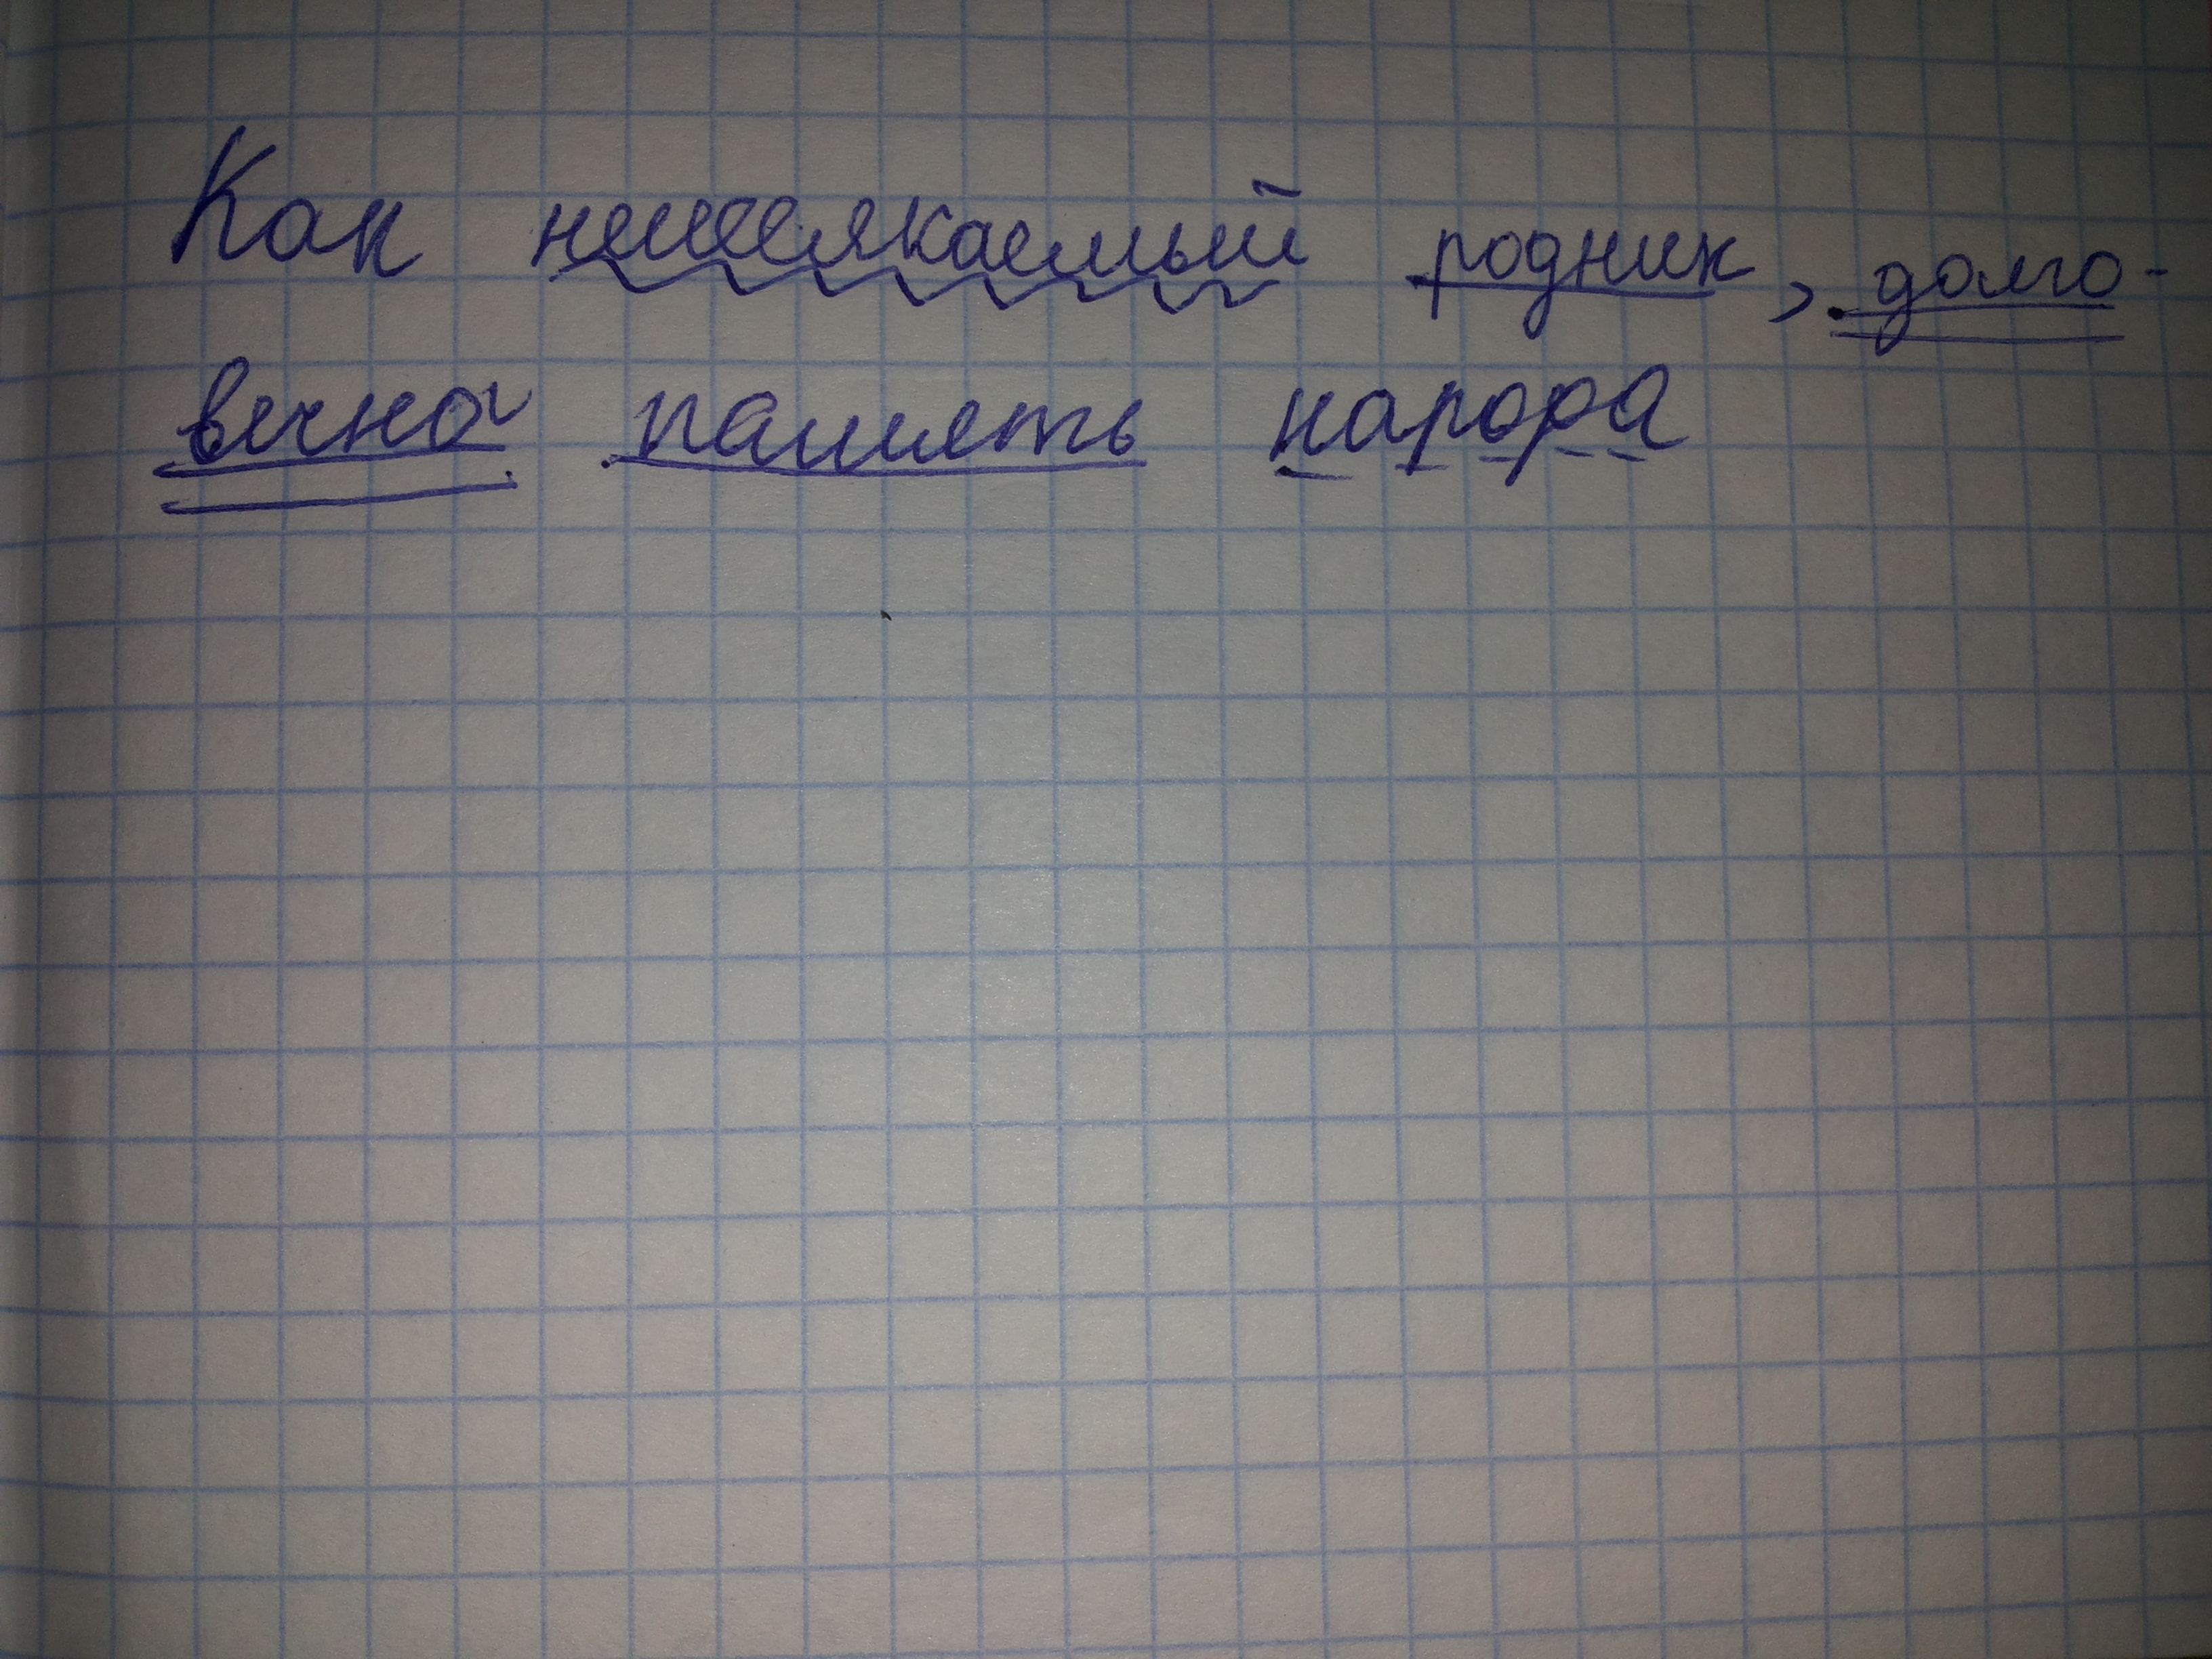 Как неиссякаемый родник, долго-
вечна память народа